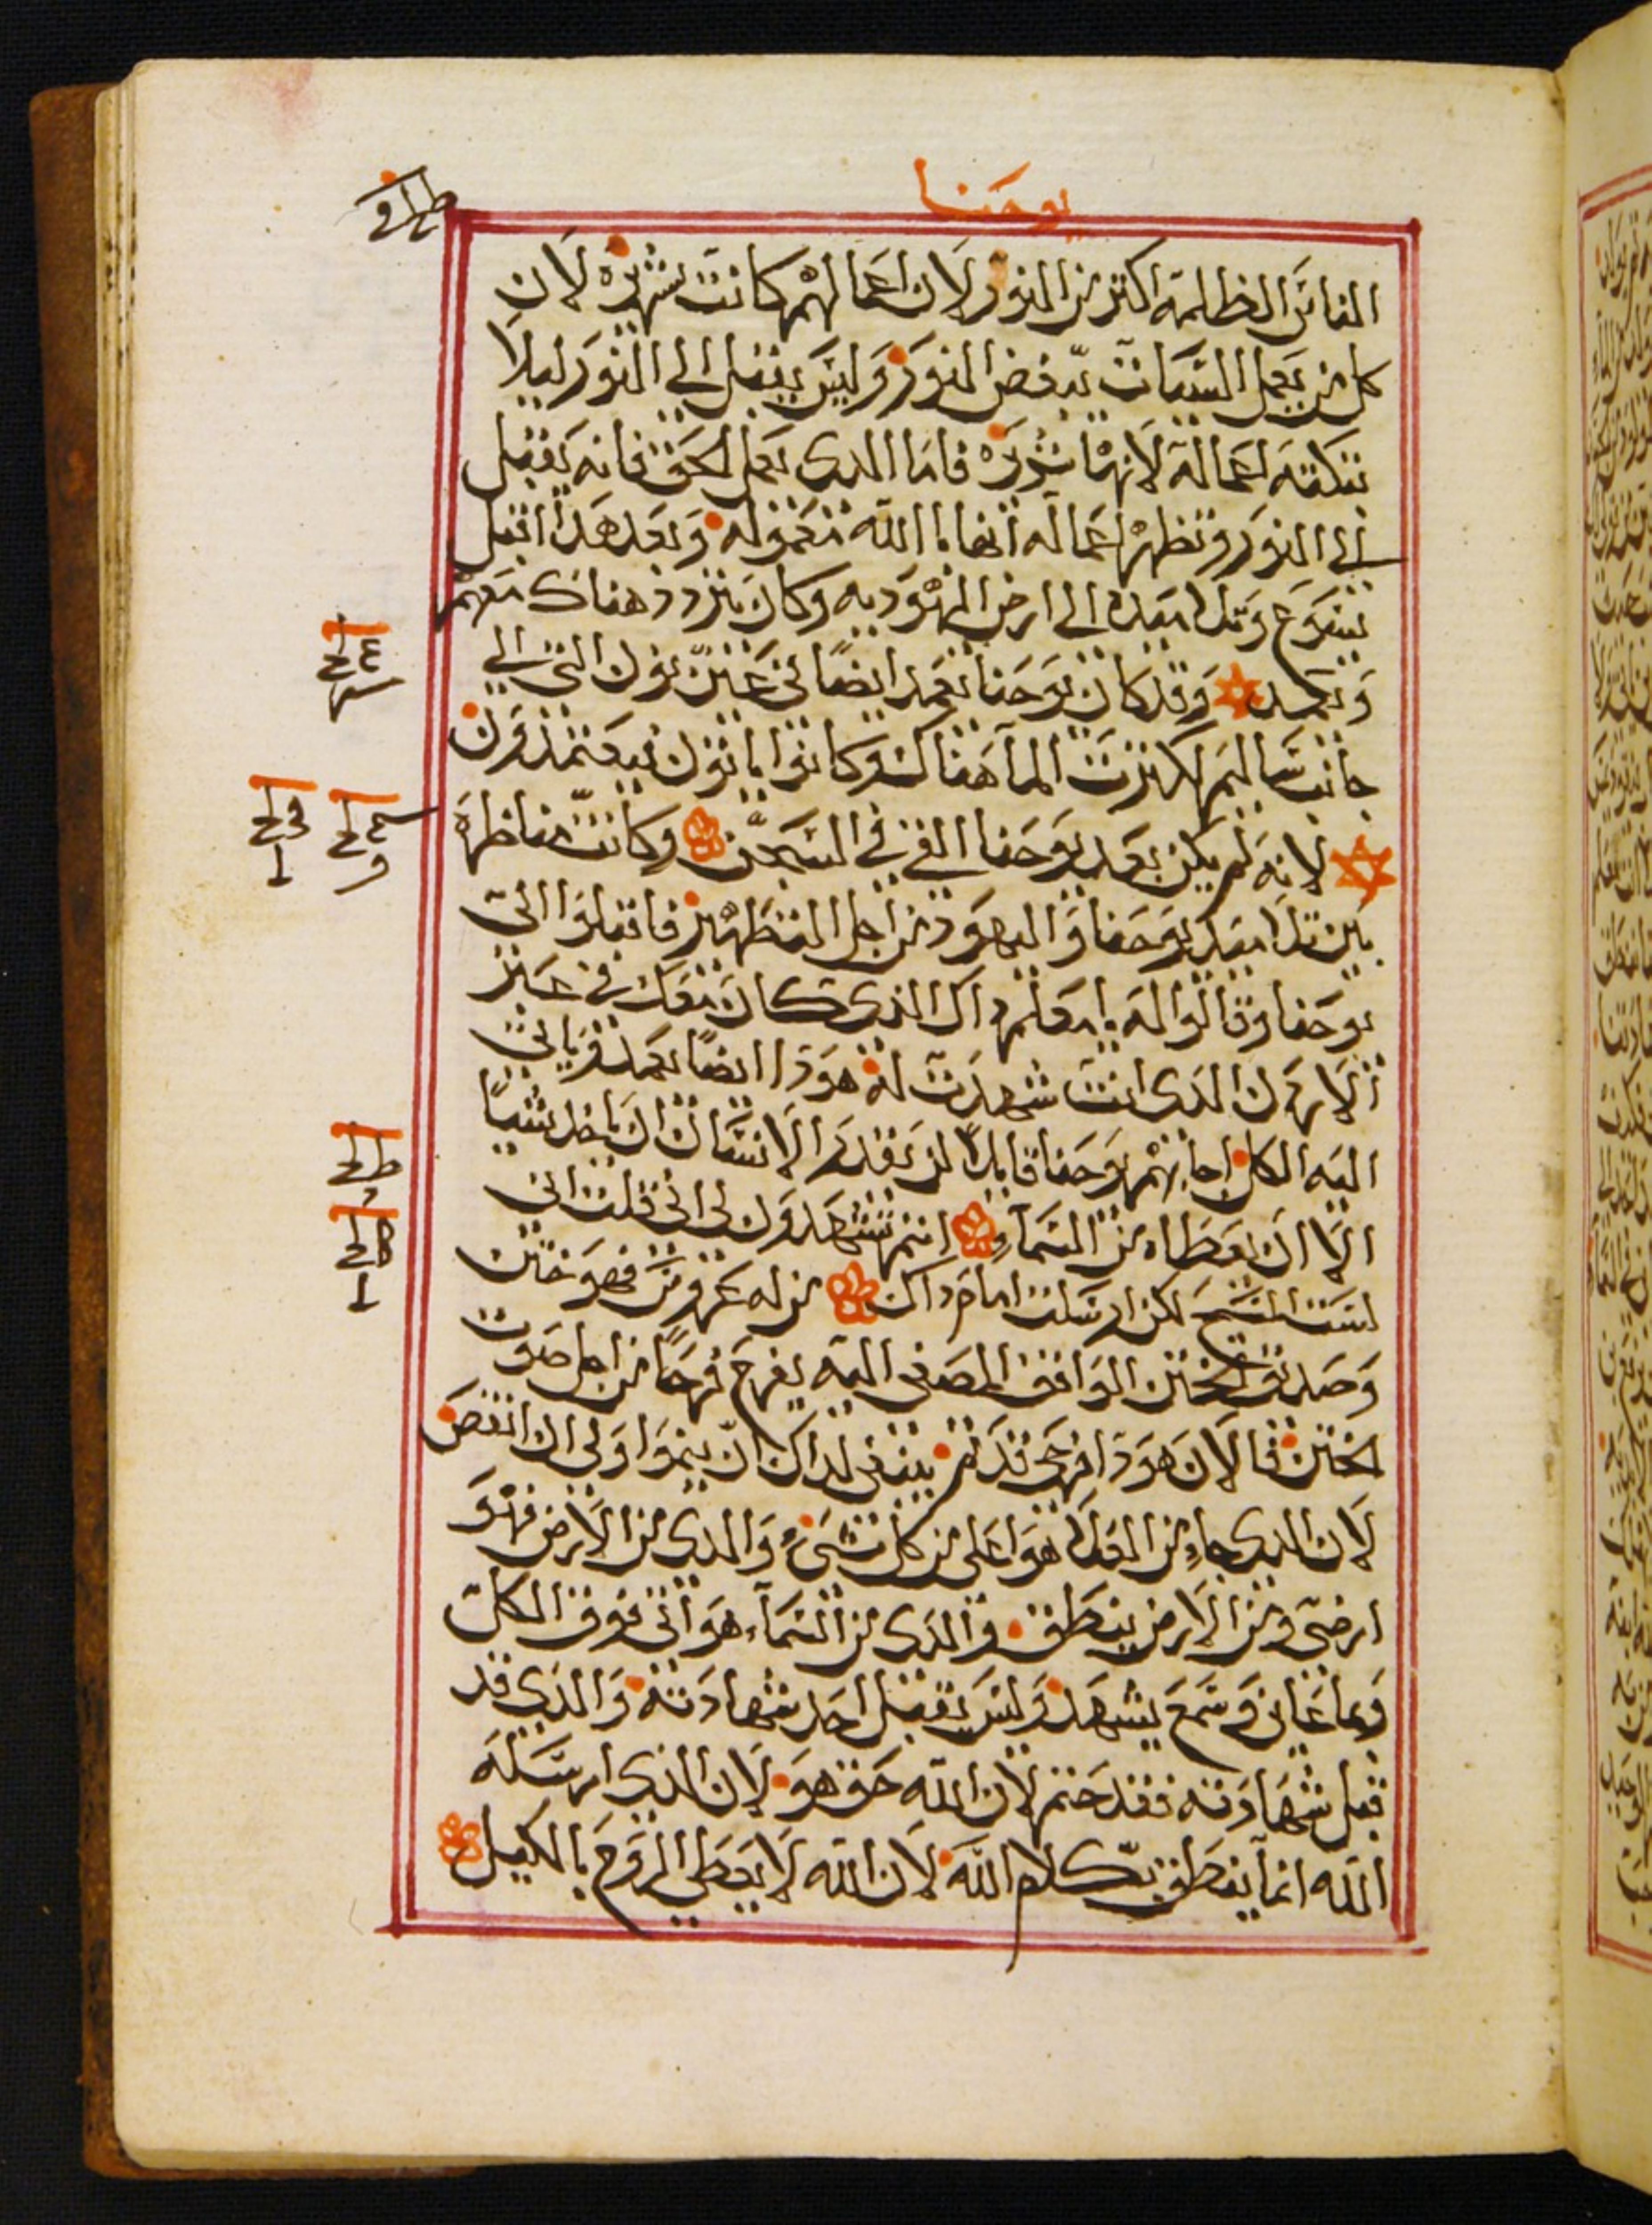 يوحنا
الناس الظلمة اكتر من النور لان اعمالهم كانت شريرة لان
كل من يعمل السيات يبغض النور وليس يقبل الى النور ليلا
تبكته اعماله لانها شريرة فاما الدى يعمل الحق فانه يقبل
الى النور وتظهر اعماله انها باالله معموله وبعد هدا اقبل
يسوع وتلاميده الى ارض اليهوديه وكان يتردد هناك معهم
ويعمد وقد كان يوحنا يعمد ايضًا في عين نون التى الى
جانب ساليم لكترت الما هناك وكانوا ياتون فيعتمدون
لانه لم يكن بعد يوحنا القى في السجن وكانت مناظره
بين تلاميد يوحنا واليهود من اجل التطهير فاقبلوا الى
يوحنا وقالوا له يامعلم داك الذى كان معك في عبر
الاردن الدى انت شهدت له هودا ايضًا يعمد وياتى
اليه الكل اجابهم يوحنا قايلاً لن يقدر الانسان ان ياخد شيًا
الا ان يعطاه من السماء انتم تشهدون لى انى قلت انى
لست المسيح لكن ارسلت امام داك من له عروس فهو ختن
وصديق الختن الواقف المصغى اليه يفرح فرحًا من اجل صوت
الختن فالان هودا فرحى قد تم ينبغى لداك ان ينموا ولى ان انقص
لان الدى جاء من العلا هو اعلى من كل شىء والدى من الارض فهو
ارضى ومن الارض ينطق والدى من السماء هو اتى فوق الكل
وبما عاين وسمع يشهد وليس يقبل احد شهادته والدى قد
قبل شهادته فقد ختم لان الله حق هو لان الذى ارسله
الله انما ينطق بكلام الله لان الله لا يعطى الروح بالكيل